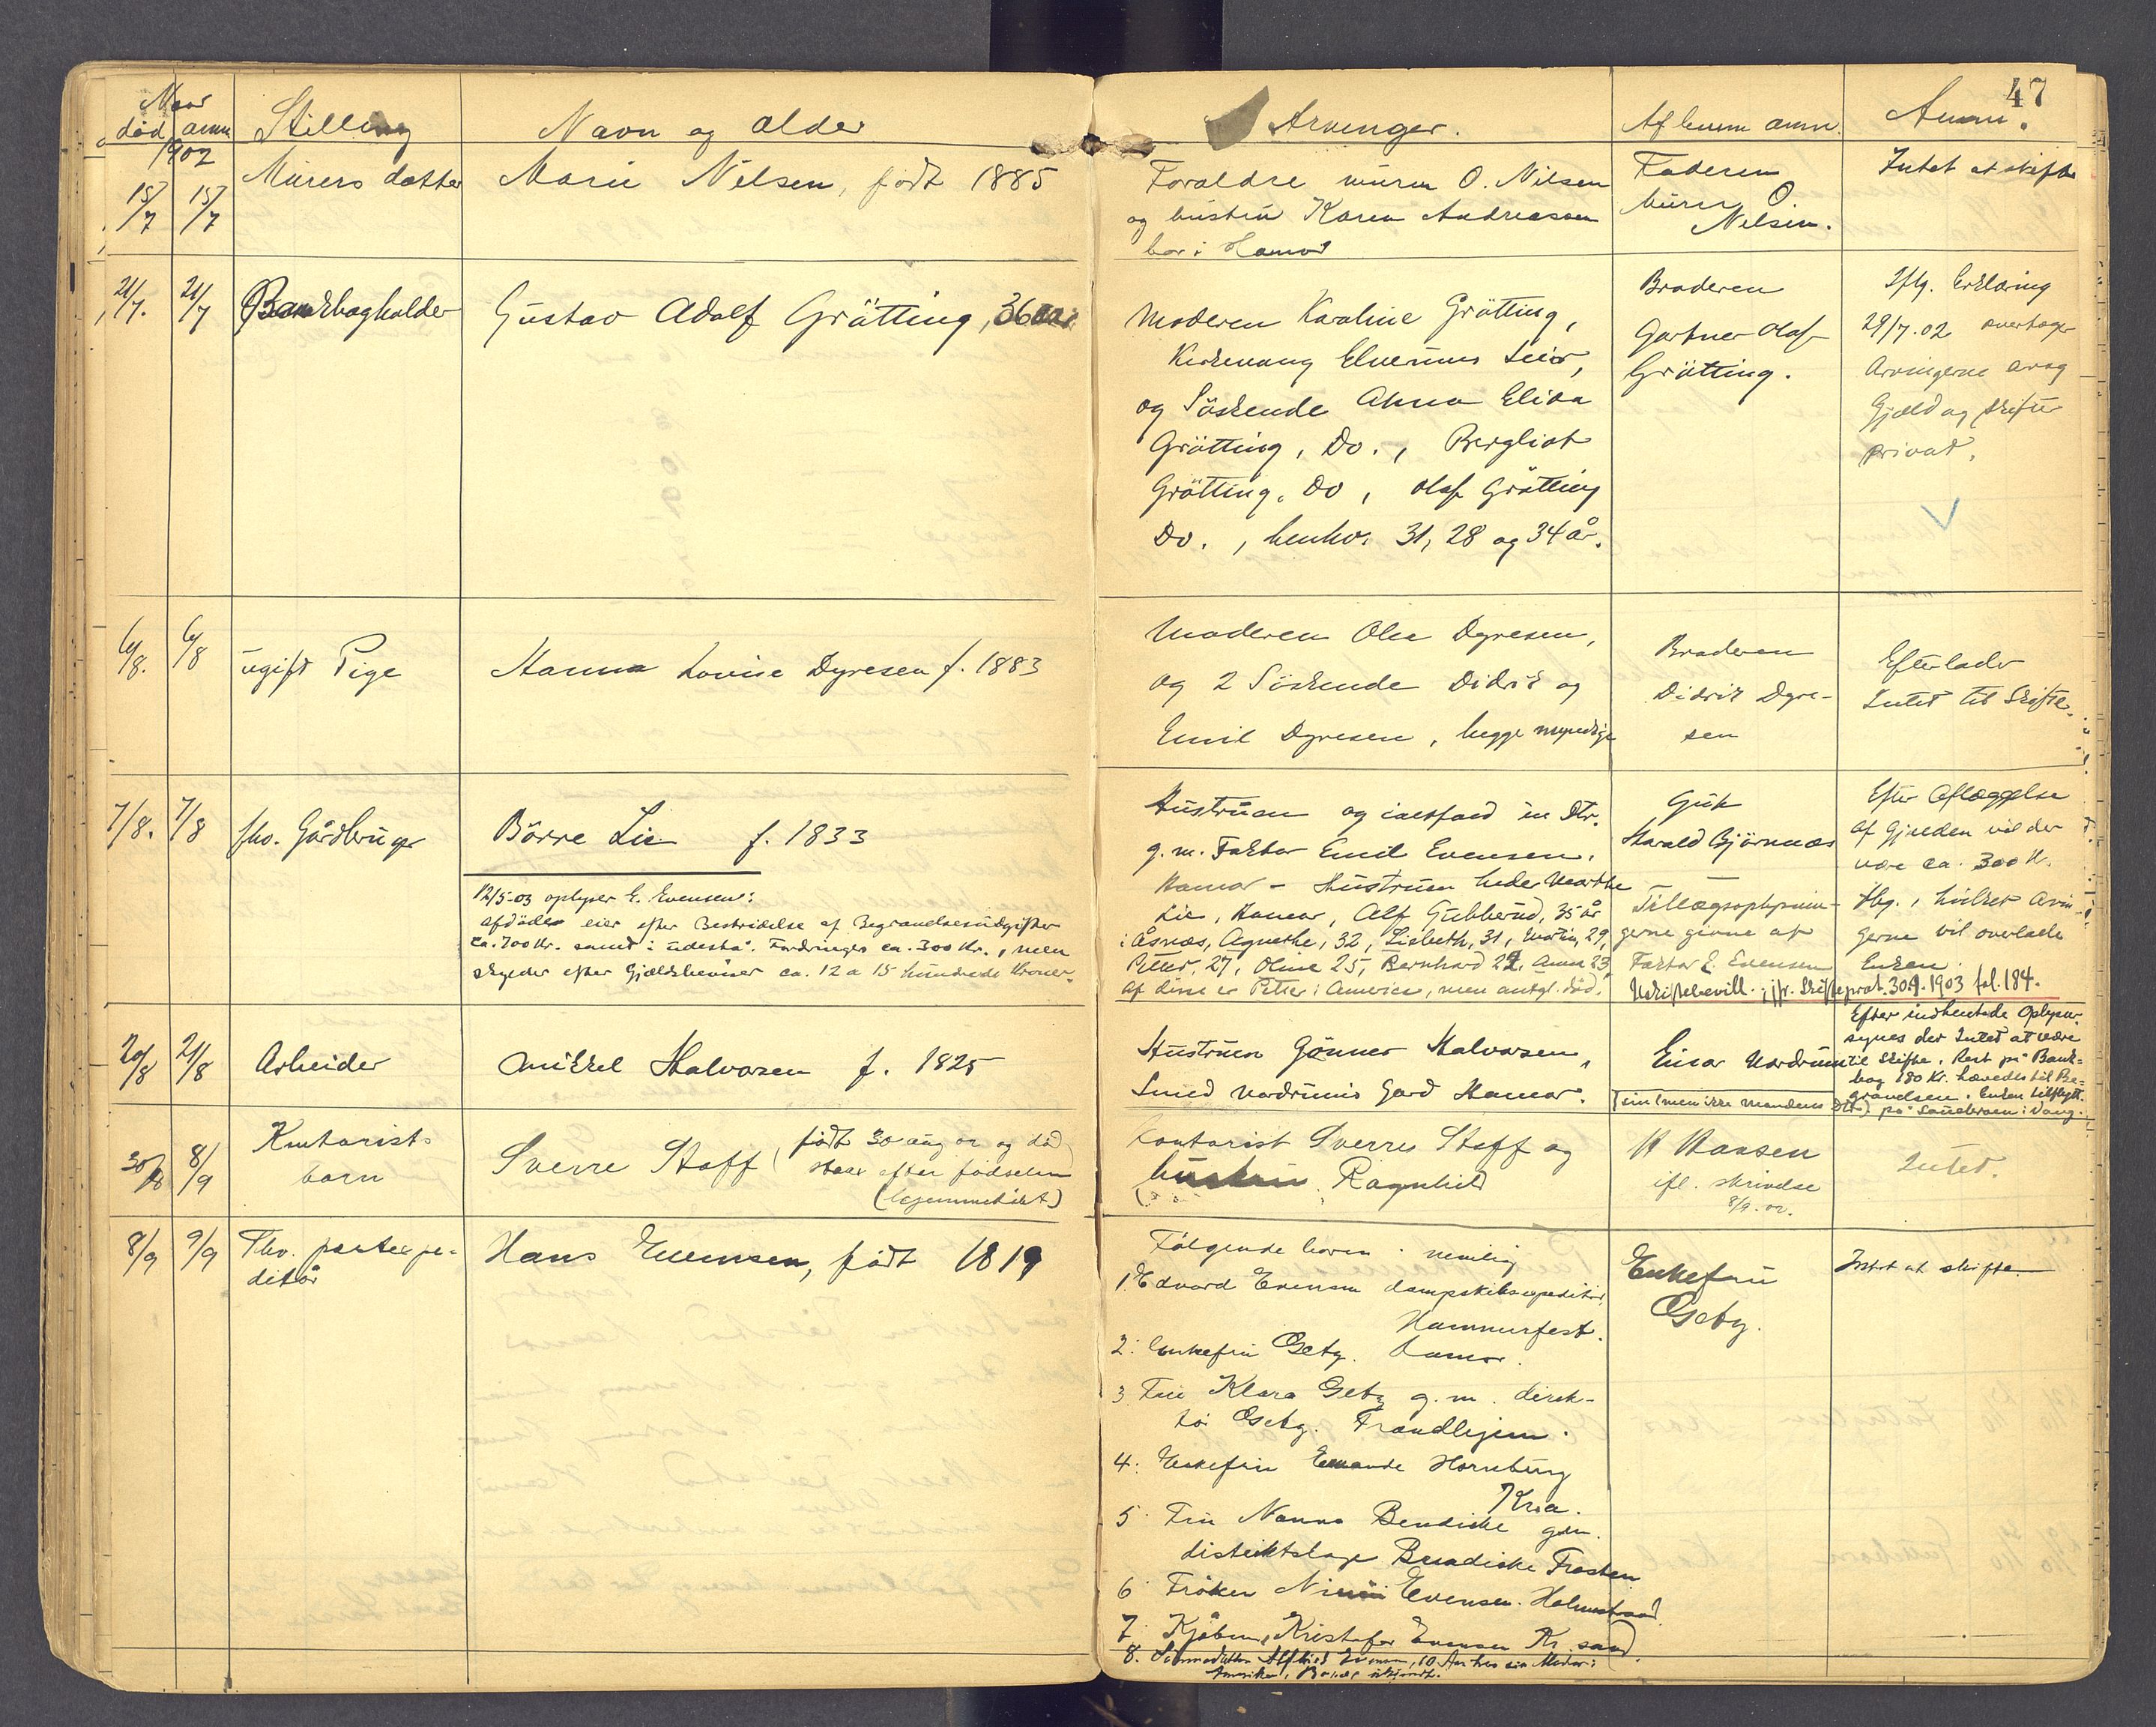 47
Naar
død anm
Stilling
Navn og alder
Arvinger.
Af hvem anm.
Anm.
1902
15/7 15/7
Murers datter
Marie Nilsen, født 1885
Forældre murer O. Nilsen
og hustru Karen Andreassen
bor i Hamar
Faderen
murer O.
Nilsen.
Intet at skifte
21/7. 21/7
Bankbogholder
Gustav Adolf Grøtting, 36 aar
Moderen Karoline Grøtting,
Kirkevang Elverums Leir,
og Søskende Anna Elisa
Grøtting, Do., Bergliot
Grøtting, Do, Olaf Grøtting
Do., henhv. 31, 28 og 34 år.
Broderen
Gartner Olaf
Grøtting.
Iflg. Erklæring
29/7.02 overtager
Arvingerne arv og
Gjæld og skifter
privat.
6/8. 6/8
ugift Pige
Hanna Lovise Dyresen f. 1883
Moderen Olea Dyresen,
og 2 Søskende Didrik og
Emil Dyresen, begge myndige
Broderen
Didrik Dyre-
sen
Efterlader
Intet til Skifte.
7/8. 7/8
fhv. Gårdbruger
Børre Lie f. 1833
12/5-03 oplyser E. Evensen:
Afdøde eier efter Bestridelse af Begravelsesudgifter
ca. 700 Kr. samt i udestå. Fordringer ca. 300 Kr., men
skylder efter Gjældsbeviser ca. 12 a 15 hundrede Kroner.
Hustruen og ialfald en Dtr.
g. m. Faktor Emil Evensen,
Hamar - Hustruen heder Marthe
Lie, Hamar, Alf Gubberud, 35 år
i Åsnæs, Agnethe, 32, Lisbeth, 31, Martin, 29,
Petter, 27, Oline 25, Bernhard 24, Anna 23,
Af disse er Petter i America, men antgl. død.
Gbr
Harald Bjørnnæs
Tillægsoplysnin-
gerne givne af
Faktor E. Evensen
Efter Aflæggelse
af Gjælden vil der
være ca. 300 Kr.
Hbg., hvilket Arvin-
gerne vil overlade
Enken.
Uskiftebevill. jfr. Skifteprot. 30/9. 1903 fol. 184.
20/8 21/8
Arbeider
Mikkel Halvorsen f. 1825
Hustruen Gønner Halvorsen,
Smed Nordrums Gård Hamar.
Einar Nordrum
(sin (men ikke Mandens Dtr.) på Sandbroen i Vang.
Efter indhentede Oplysn.
synes der Intet at være
til Skifte. Rest på Bank-
bog 180 Kr. hævedes til Be-
gravelsen. Enken tilflytt.
30/8 8/9
Kontorist-
barn
Sverre Stoff (født 30 aug 02 og død
strax efter fødselen
(hjemmedøbt)
Kontorist Sverre Stoff og
hustru Ragnhild
H Hansen
ifl. skrivelse
8/9.02.
Intet.
8/9 9/9
Fhv. postexpe-
ditør
Hans Evensen, født 1819
Følgende børn nemlig
1. Edvard Evensen dampskibsexpeditør,
Hammerfest.
2. Enkefru Oseby. Hamar.
3 Fru Klara Oseby g. m. direk-
tør Oseby. Trondhjem.
4. Enkefru Emande Hornburg
Kria.
5. Fru Nanna Bendiske gm.
distriktslæge Bendiske Frosten
6. Frøken Evensen. Holmestrand
7. Kjøbm. Kristofer Evensen Kr. sand.
8. Sønnedatter Evensen, 10 Aar hos sin Moder i
Amerika,
Enkefru
Oseby.
Intet at skifte